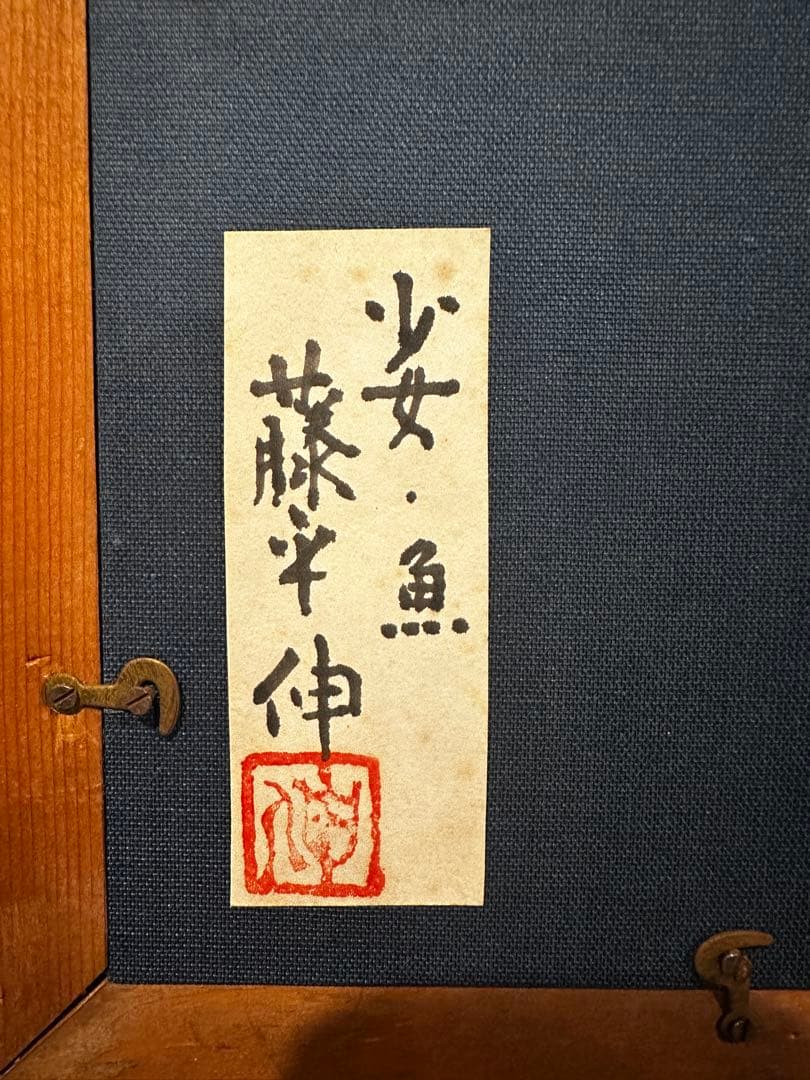 少女・魚
藤平伸